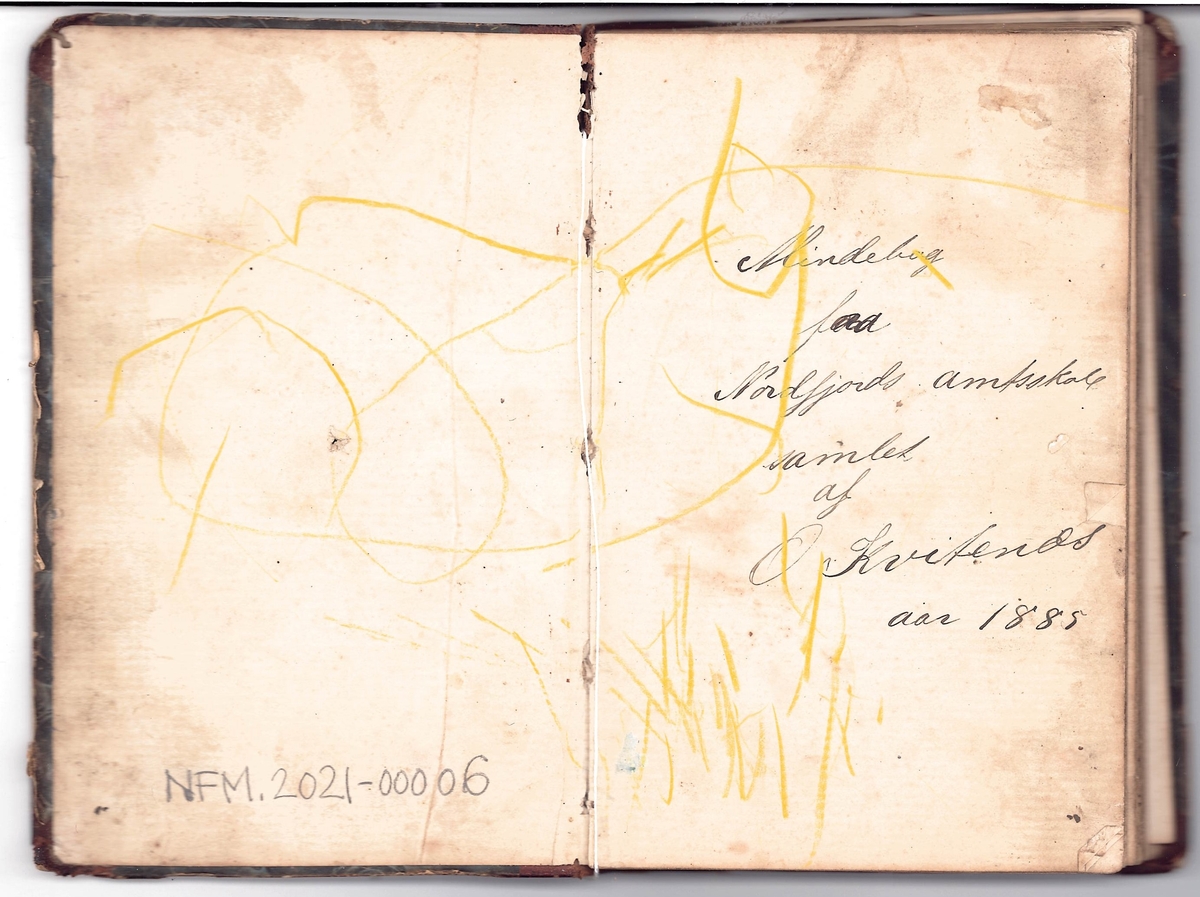 NFM.2021-00006
Mindebog
fraa
Nordfjords amtsskole
samlet
af
O Kvitenæs
aar 1885